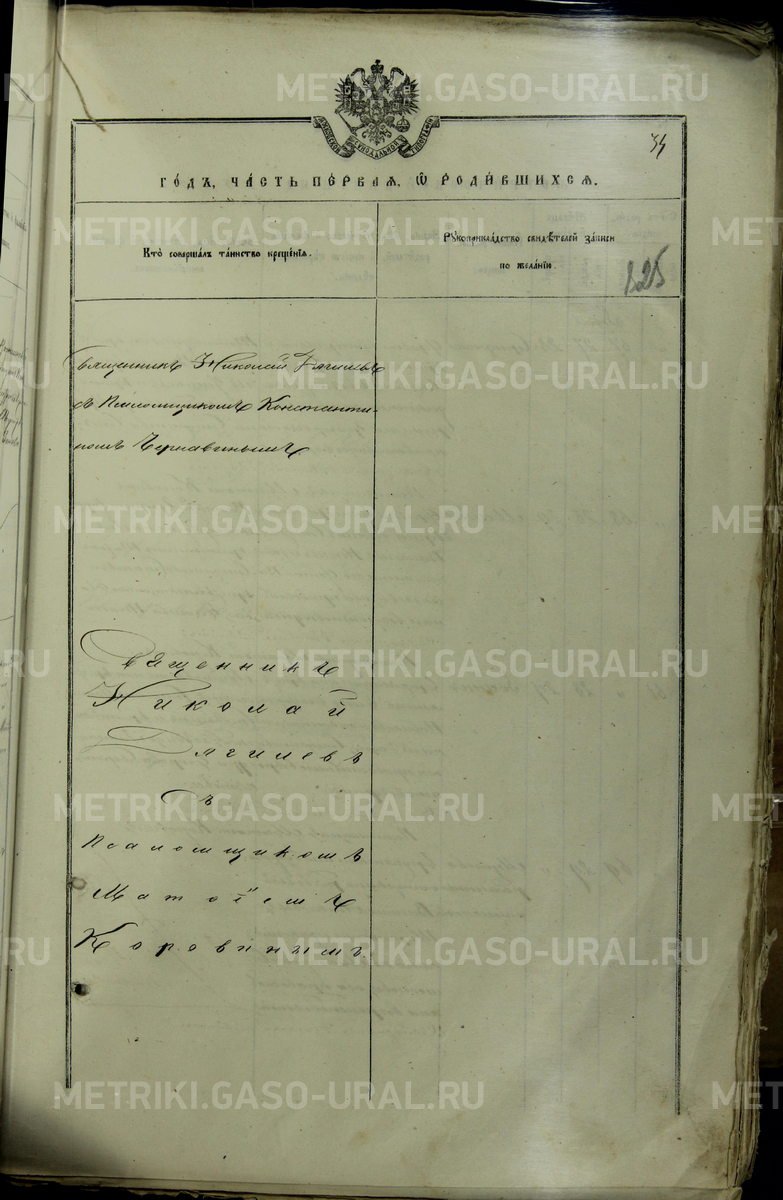 34
ГОДЪ, ЧАСТЬ ПЕРВАЯ, Ѡ РОДИВШИХСЯ.
Кто совершалъ таинство крещенія.
Рукоприкладство свидѣтелей записи
по желанію.
125
Священникъ Николай Дягилевъ
съ Псаломщикомъ Константи-
номъ Чернавинымъ
Священникъ
Николай
Дягилевъ
съ
Псаломщикомъ
Матѳіемъ
Коровинымъ
METRIKI.GASO-URAL.RU